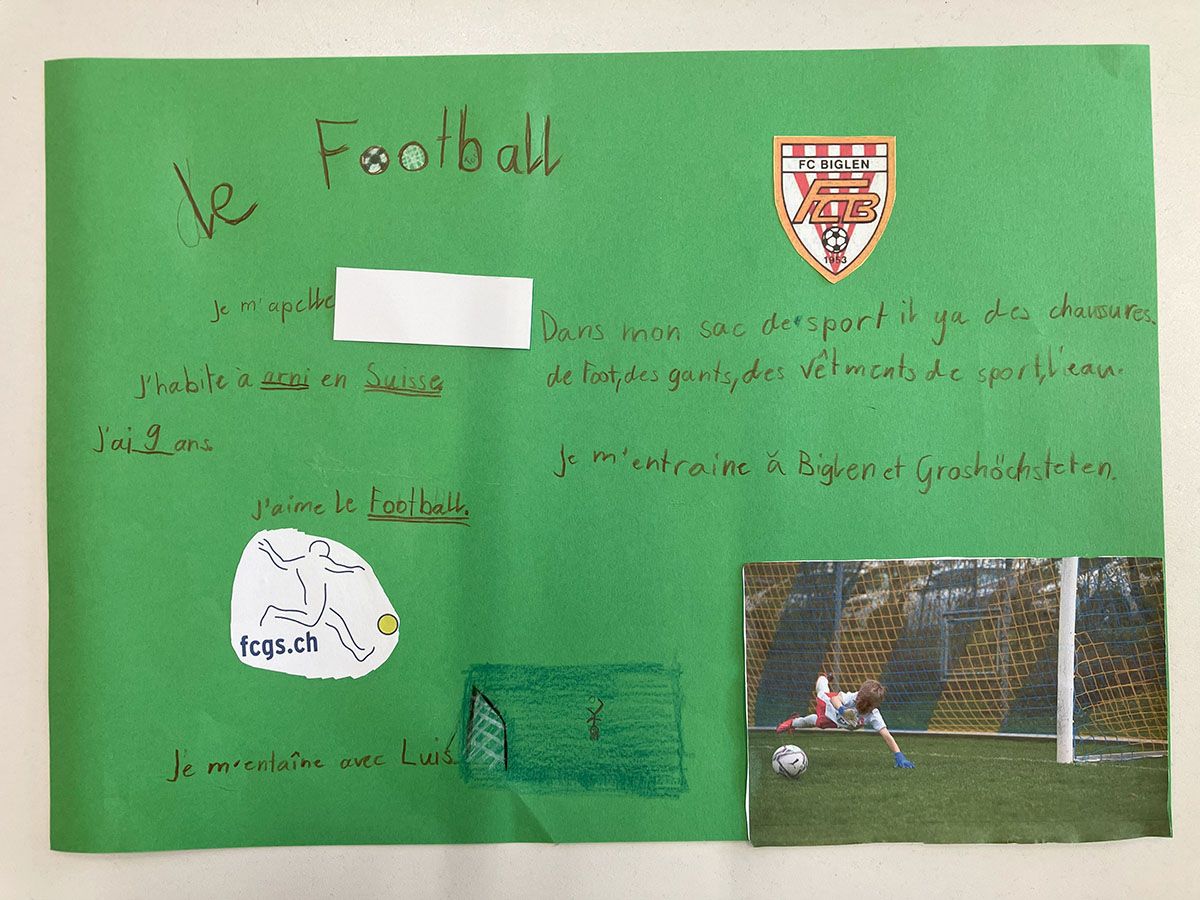 Le Football
FC BIGLEN
FCB
1953
Je m'apelle
J'habite à arni en Suisse
J'ai 9 ans.
J'aime le Football.
fcgs.ch
Je m'entaîne avec Luis
Dans mon sac de sport il ya des chaussures.
de Foot, des gants, des vêtments de sport, l'eau.
Je m'entraine à Biglen et Groshöchsteten.